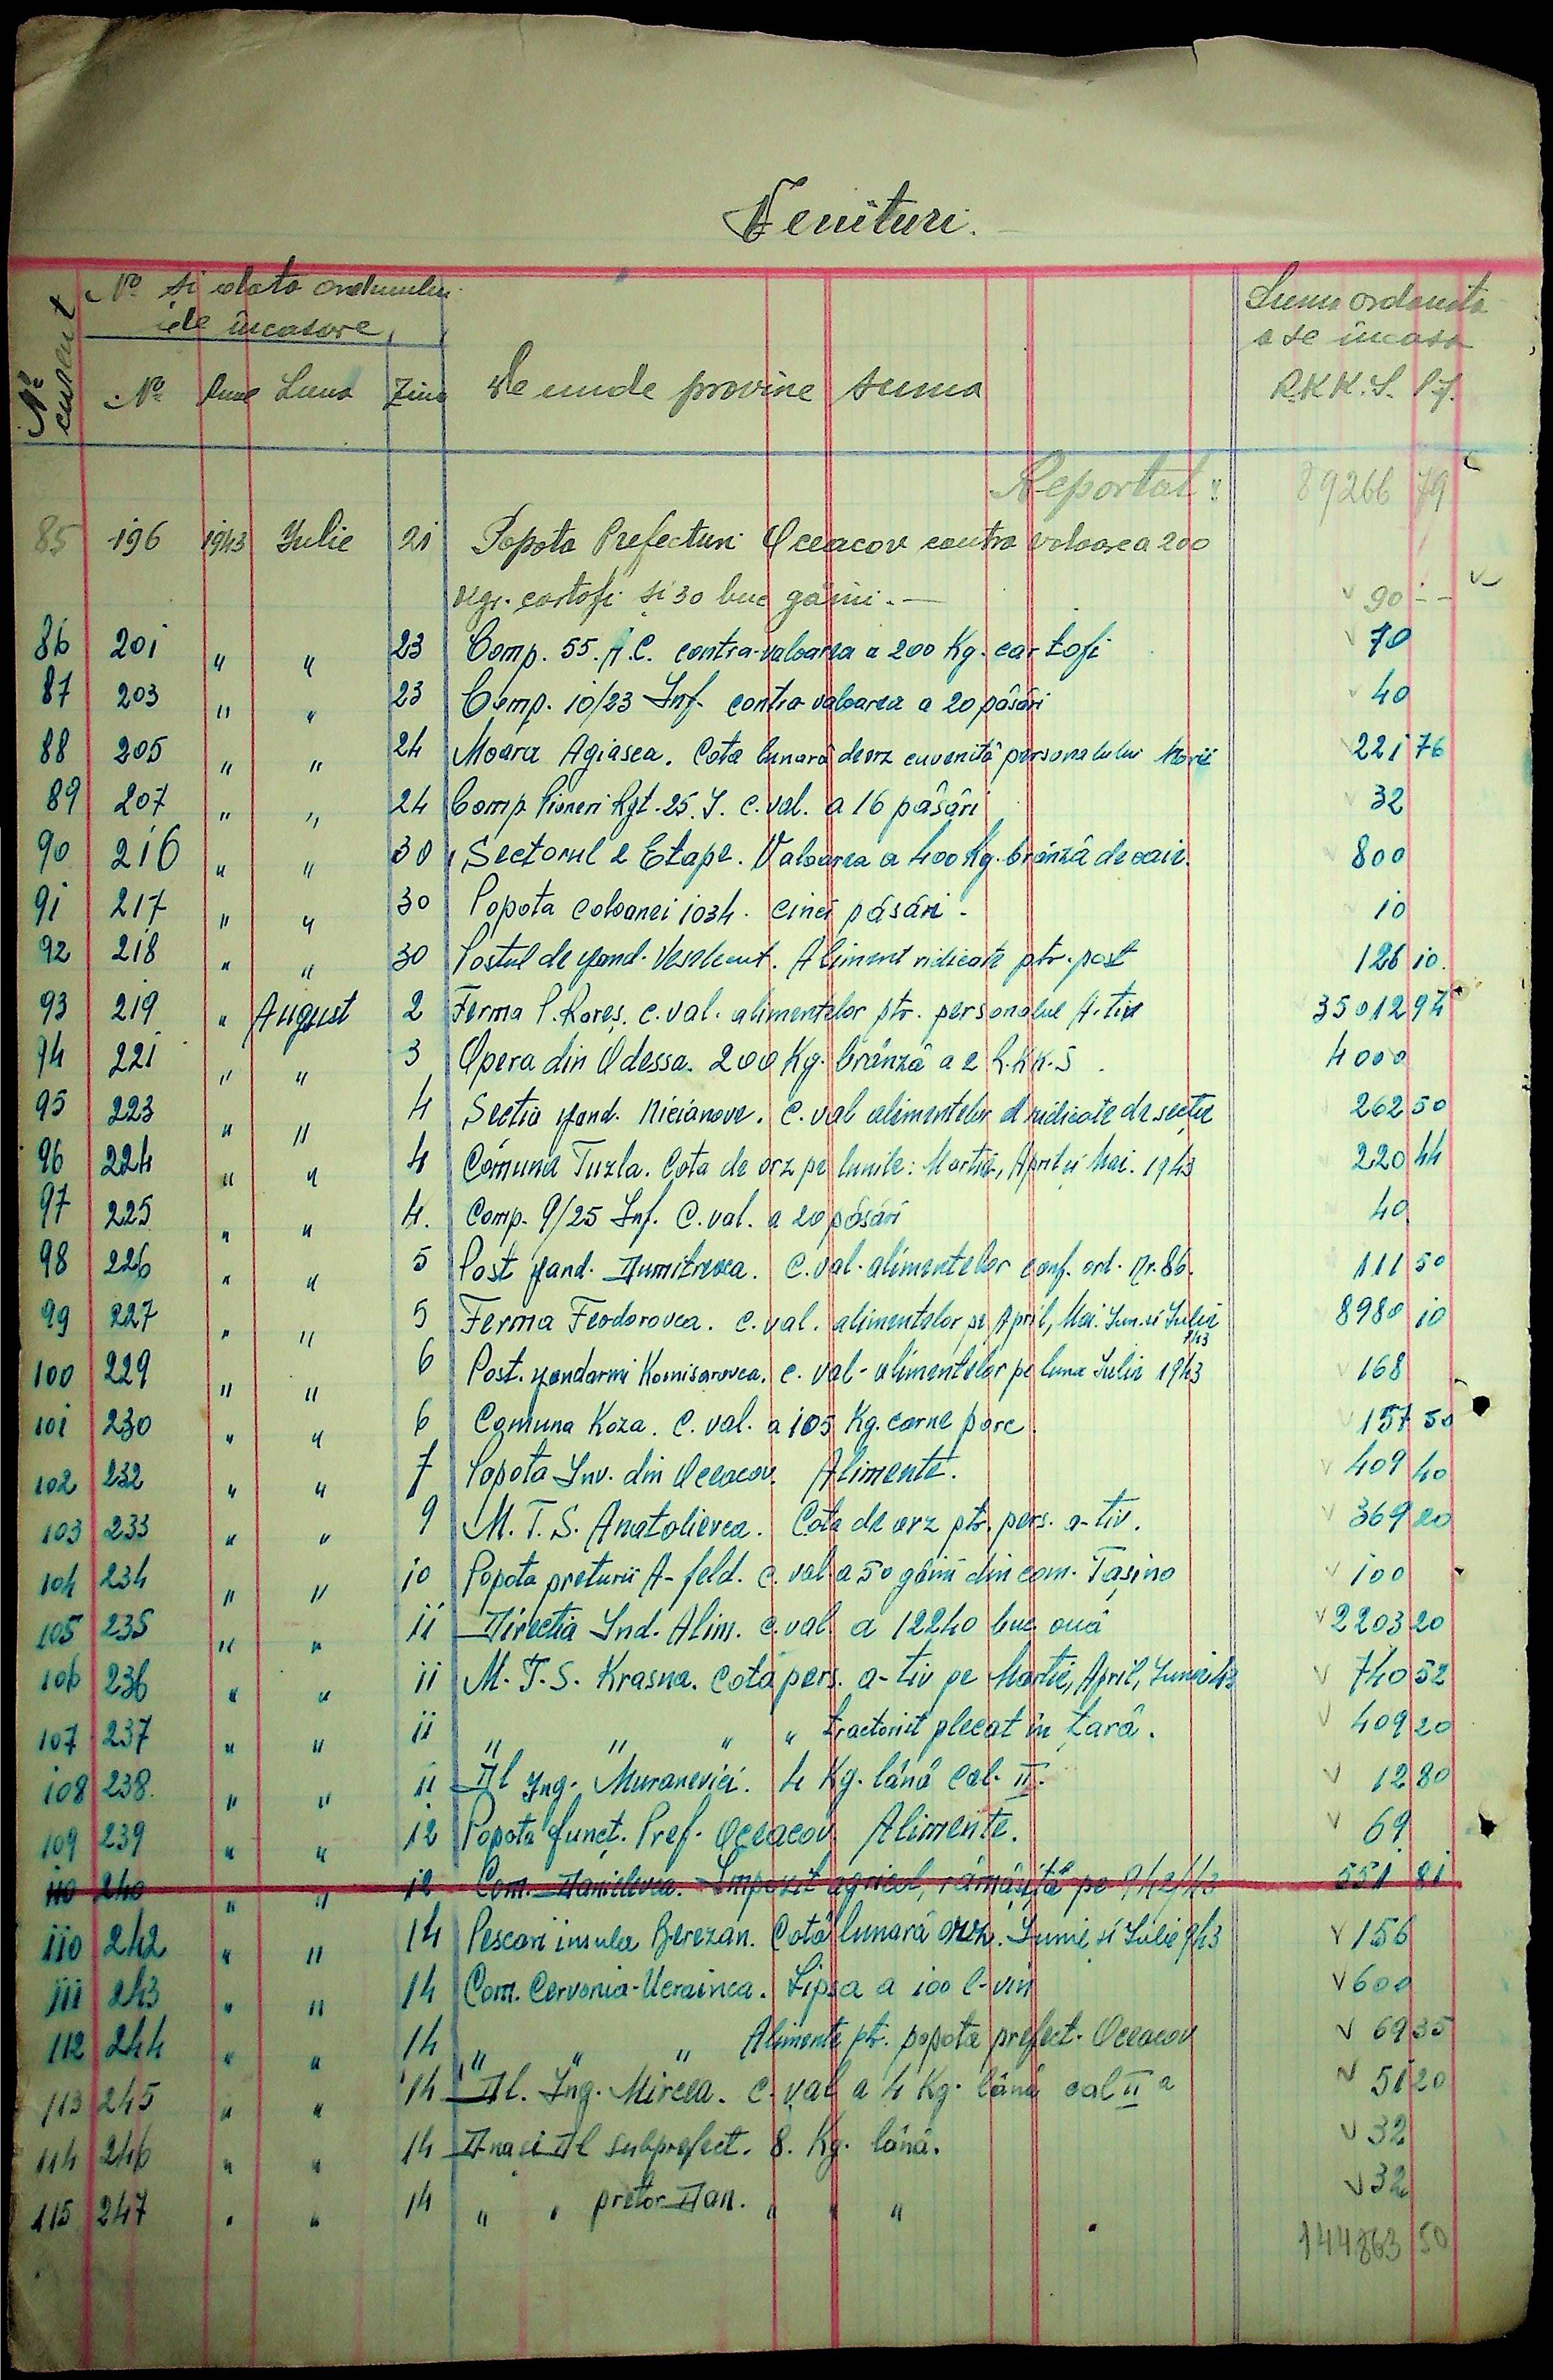 Venituri.
No și data ordinului
de încasare
Suma ordonată
a se încasa
No curent
No Anul Luna Ziua De unde provine suma R.K.K.S. Pf.
Reportat: 89266 79
85 196 1943 Iulie 21 Popota Prefecturi Oceacov contra valoarea 200
kgr. cartofi și 30 buc găini. — 90 - -
86 201 " " 23 Comp. 55. A.C. contra-valoarea a 200 Kg. cartofi 70
87 203 " " 23 Comp. 10/23 Inf. contra valoarea a 20 păsări 40
88 205 " " 24 Moara Agiasca. Cota lunară de orz cuvenită personalului Morii 221 76
89 207 " " 24 Comp. Pioneri Rgt. 25. I. c. val. a 16 păsări 32
90 216 " " 30 Sectorul 2 Etape. Valoarea a 400 Kg. brânză de oaie. 800
91 217 " " 30 Popota coloanei 1034. cinci păsări. 10
92 218 " " 30 Postul de jand. Aliment ridicate ptr. post 126 10.
93 219 " August 2 Ferma P. c. val. alimentelor ptr. personalul A-tiv 35012 94
94 221 " " 3 Opera din Odessa. 200 Kg. brânză a 2 R.KK.S. 4000
95 223 " " 4 Sectia jand. Nicianova. c. val alimentelor ridicate de secție 262 50
96 224 " " 4 Comuna Tuzla. Cota de orz pe lunile: Martie, April și Mai. 1943 220 44
97 225 " " 4. Comp. 9/25 Inf. C. val. a 20 păsări 40
98 226 " " 5 Post jand. Dumitrovca. C. val. alimentelor conf. ord. Nr. 86. 111 50
99 227 " " 5 Ferma Feodorovca. c. val. alimentelor pe April, Mai. Iun. și Iulie 943 8980 10
100 229 " " 6 Post. jandarmi Komisarovca. c. val - alimentelor pe luna Iulie 1943 168
101 230 " " 6 Comuna Koza. C. val. a 105 Kg. carne porc 157 50
102 232 " " 7 Popota Inv. din Oceacov. Alimente. 409 40
103 233 " " 9 M. T. S. Anatolievca. Cota de orz ptr. pers. a-tiv. 369 20
104 234 " " 10 Popota preturii A-feld. c. val a 50 găini din com. Tașino 100
105 235 " " 11 Directia Ind. Alim. c. val a 12240 buc ouă 2203 20
106 236 " " 11 M. T. S. Krasna. Cotă pers. a-tiv pe Martie, April, Iunie 43 740 52
107 237 " " 11 " " " " tractorist plecat în țară. 409 20
108 238. " " 11 Dl Ing. Muranevici. 4 Kg. lână cal. II. 12 80
109 239 " " 12 Popota funct. Pref. Oceacov Alimente. 69
110 240 " " 12 Com. Danilevca. Impozit agricol, rămășită pe 942/43 551 81
110 242 " " 14 Pescari insula Berezan. Cotă lunară orz. Iunie și Iulie 943 156
111 243 " " 14 Com. Cervonia-Ucrainca. Lipsa a 100 l-vin 600
112 244 " " 14 " " " Alimente ptr. popota prefect. Oceacov 69 35
113 245 " " 14 Dl. Ing. Mircea. c. val a 4 Kg. lână cal II a 51 20
114 246 " " 14 Dna și Dl subprefect. 8. Kg. lână. 32
115 247 " " 14 " " pretor Dan. " " " 32
144863 50